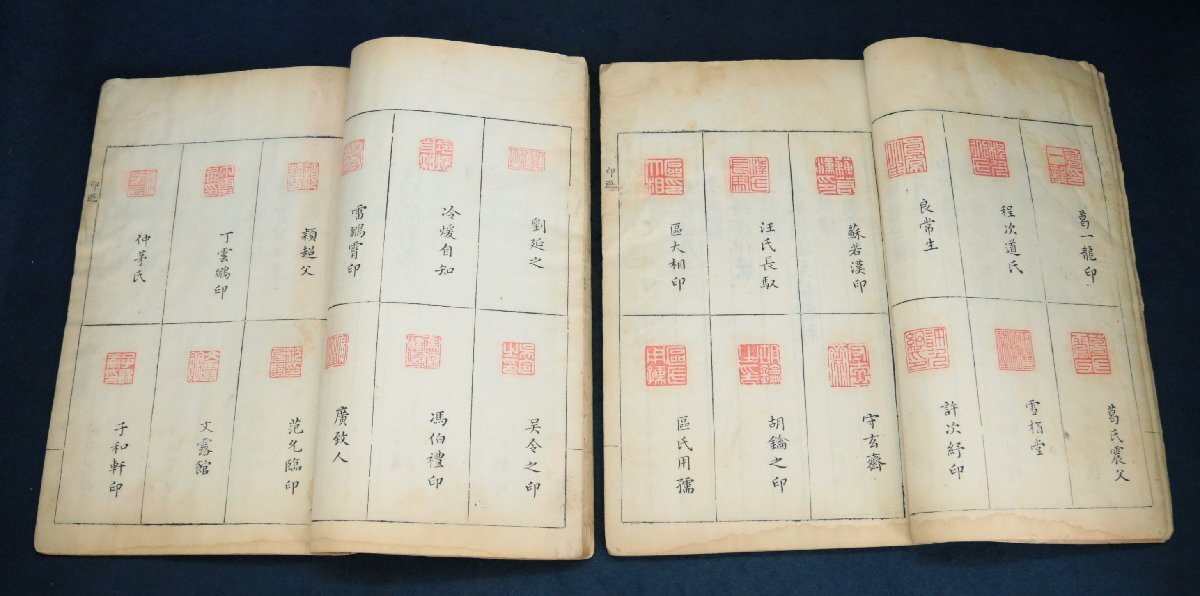 葛一龍印
程次道氏
良常生
葛氏震父
雪栢堂
許次紓印
蘇若漢印
汪氏長馭
區大相印
守玄齋
胡鑰之印
區氏用孺
劉延之
冷煖自知
雷鵾霄印
吴令之印
馮伯禮印
廣致人
穎超父
丁雲鵬印
仲茅氏
范允臨印
文露館
子和軒印